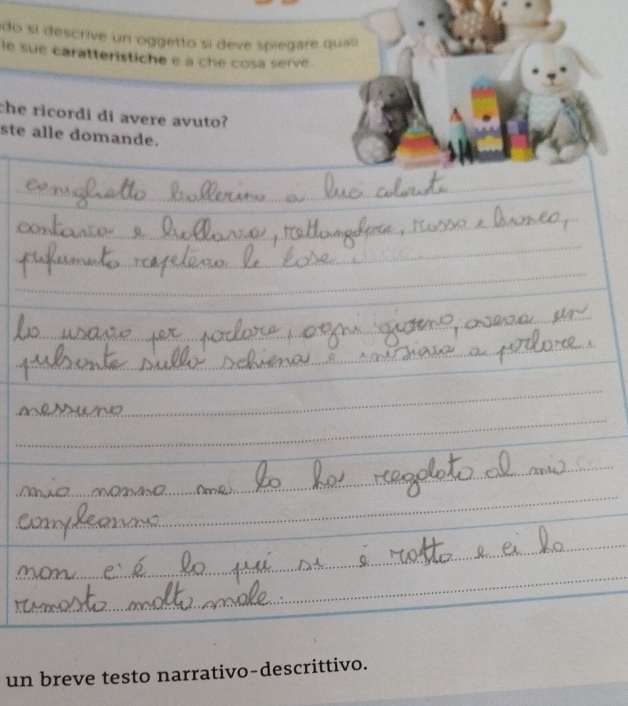 do si descrive un oggetto si deve spiegare quali
le sue caratteristiche e a che cosa serve.
che ricordi di avere avuto?
ste alle domande.
conighetto ballerino a luci colorate
cantava e ballava, rettangolare, rosso e bianco,
profumato
lo usavo per parlare, ogni giorno, aveva un
pulsante sulla schiena e iniziava a parlare.
nessuno
mio nonno me lo ha regalato al mio
compleanno
non c'è lo più si è rotto e ci ho
rimasto molto male.
un breve testo narrativo-descrittivo.